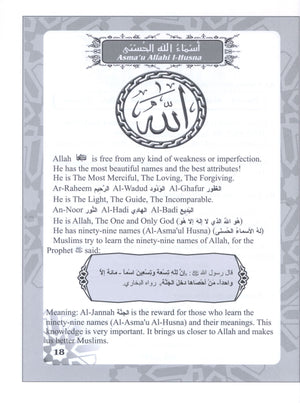 أسماء الله الحسنى
Asma'u Allahi l-Husna
الله
Allah ﷻ is free from any kind of weakness or imperfection.
He has the most beautiful names and the best attributes!
He is The Most Merciful, The Loving, The Forgiving.
Ar-Raheem الرَّحِيم Al-Wadud الوَدُود Al-Ghafur الغَفُور
He is The Light, The Guide, The Incomparable.
An-Noor النُّور Al-Hadi الهَادِي Al-Badi البَدِيع
He is Allah, The One and Only God (هُوَ اللهُ الَّذِي لَا إِلَهَ إِلَّا هُوَ)
He has ninety-nine names (Al-Asma'ul Husna) (لَهُ الأَسْمَاءُ الحُسْنَى)
Muslims try to learn the ninety-nine names of Allah, for the
Prophet ﷺ said:
قال رسول الله ﷺ: «إِنَّ لِلَّهِ تِسْعَةً وَتِسْعِينَ اسْمًا - مِائَةً إِلَّا
وَاحِدًا، مَنْ أَحْصَاهَا دَخَلَ الجَنَّةَ». رواه البخاري.
Meaning: Al-Jannah الجَنَّة is the reward for those who learn the
ninety-nine names (Al-Asma'u Al-Husna) and their meanings. This
knowledge is very important. It brings us closer to Allah and makes
us better Muslims.
18